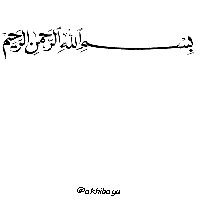 بِسْمِ اللهِ الرَّحْمٰنِ الرَّحِيْمِ
@okhibaya